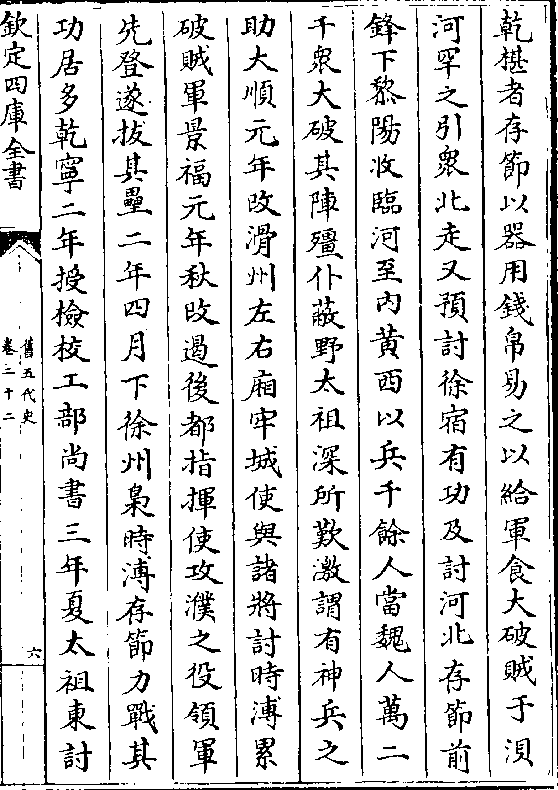 乾椹者存節以器用錢帛易之以給軍食大破賊于洹
河罕之引衆北走又預討徐宿有功及討河北存節前
鋒下黎陽收臨河至内黄西以兵千餘人當魏人萬二
千衆大破其陣殭仆蔽野太祖深所歎激謂有神兵之
助大順元年改滑州左右廂牢城使與諸將討時溥累
破賊軍景福元年秋改遏後都指揮使攻濮之役領軍
先登遂拔其壘二年四月下徐州梟時溥存節力戰其
功居多乾寧二年授檢校工部尚書三年夏太祖東討
欽定四庫全書
舊五代史
卷二十二
六